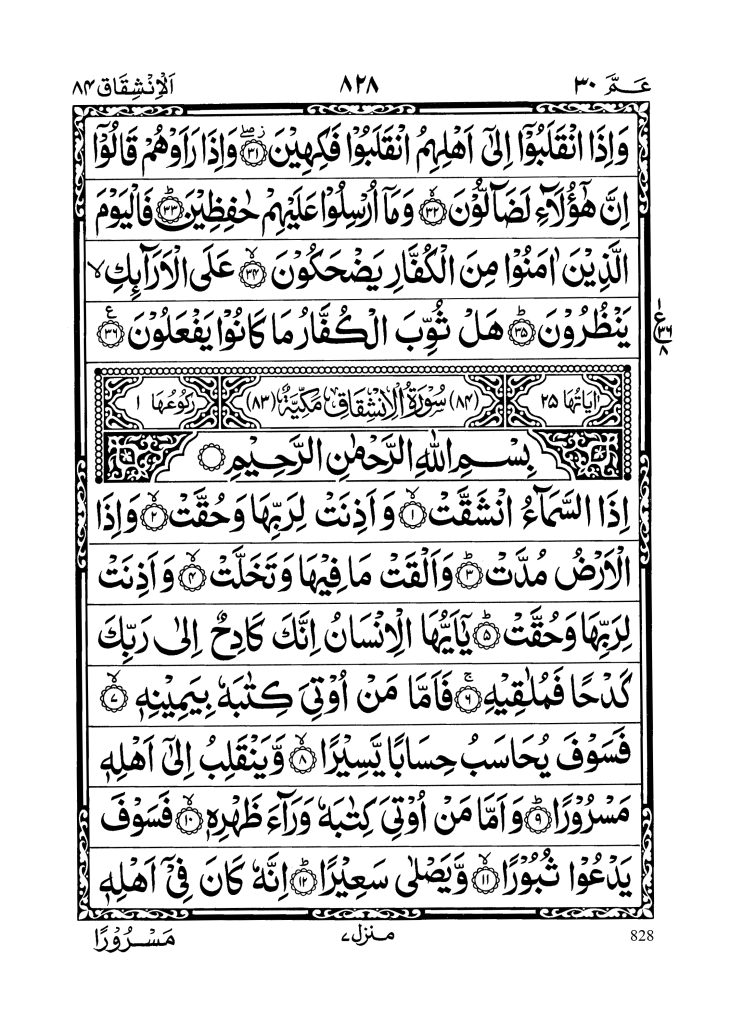 عَـمَّ ٣٠ ٨٢٨ اَلْاِنْشِقَاق ٨٤
وَاِذَا انْقَلَبُوْۤا اِلٰۤى اَهْلِهِمُ انْقَلَبُوْا فَكِهِيْنَ ۖز ۝٣١ وَاِذَا رَاَوْهُمْ قَالُوْۤا
اِنَّ هٰۤؤُلَآءِ لَضَآلُّوْنَ ۙ۝٣٢ وَمَاۤ اُرْسِلُوْا عَلَيْهِمْ حٰفِظِيْنَ ؕ۝٣٣ فَالْيَوْمَ
الَّذِيْنَ اٰمَنُوْا مِنَ الْكُفَّارِ يَضْحَكُوْنَ ۙ۝٣٤ عَلَى الْاَرَآئِكِ ۙ
يَنْظُرُوْنَ ؕ۝٣٥ هَلْ ثُوِّبَ الْكُفَّارُ مَا كَانُوْا يَفْعَلُوْنَ ۝٣٦ ع
١ ع ٣٦ ٨
اٰيَاتُهَا ٢٥ (٨٤) سُوْرَةُ الْاِنْشِقَاقِ مَكِّيَّةٌ (٨٣) رُكُوْعُهَا ١
بِسْمِ اللّٰهِ الرَّحْمٰنِ الرَّحِيْمِ ۝
اِذَا السَّمَآءُ انْشَقَّتْ ۙ۝١ وَاَذِنَتْ لِرَبِّهَا وَحُقَّتْ ۙ۝٢ وَاِذَا
الْاَرْضُ مُدَّتْ ؕ۝٣ وَاَلْقَتْ مَا فِيْهَا وَتَخَلَّتْ ۙ۝٤ وَاَذِنَتْ
لِرَبِّهَا وَحُقَّتْ ؕ۝٥ يٰۤاَيُّهَا الْاِنْسَانُ اِنَّكَ كَادِحٌ اِلٰى رَبِّكَ
كَدْحًا فَمُلٰقِيْهِ ۚ۝٦ فَاَمَّا مَنْ اُوْتِىَ كِتٰبَهٗ بِيَمِيْنِهٖ ۙ۝٧
فَسَوْفَ يُحَاسَبُ حِسَابًا يَّسِيْرًا ۙ۝٨ وَّيَنْقَلِبُ اِلٰۤى اَهْلِهٖ
مَسْرُوْرًا ؕ۝٩ وَاَمَّا مَنْ اُوْتِىَ كِتٰبَهٗ وَرَآءَ ظَهْرِهٖ ۙ۝١٠ فَسَوْفَ
يَدْعُوْا ثُبُوْرًا ۙ۝١١ وَّيَصْلٰى سَعِيْرًا ؕ۝١٢ اِنَّهٗ كَانَ فِىْۤ اَهْلِهٖ
828 منزل ٧ مَسْرُوْرًا